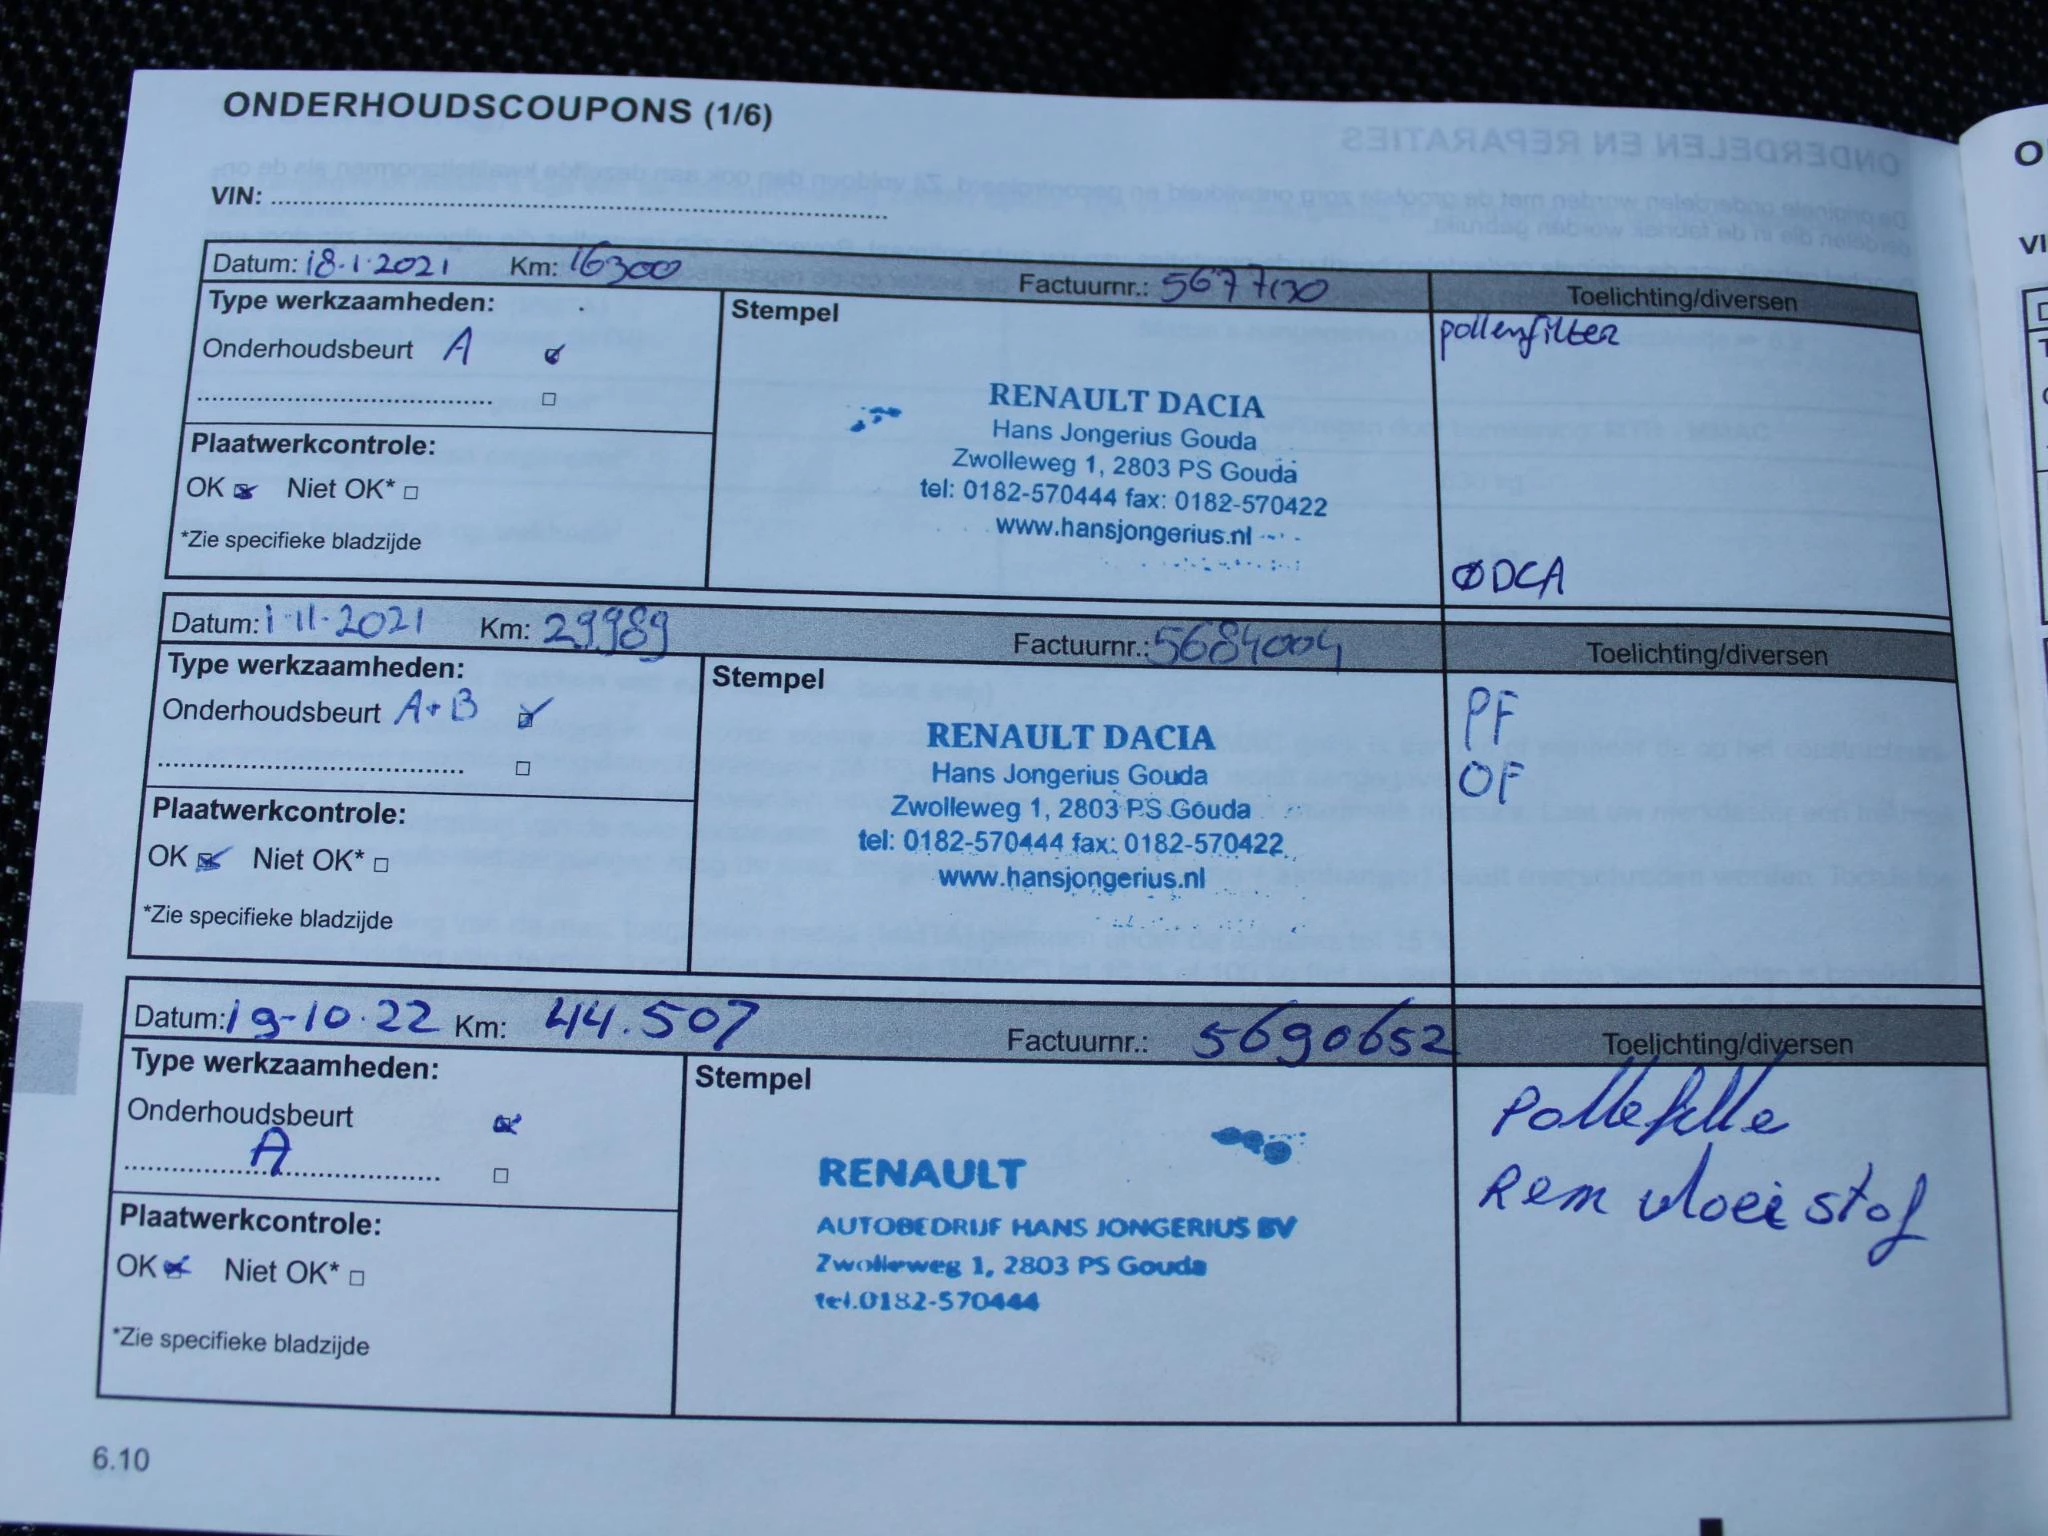 ONDERHOUDSCOUPONS (1/6)
VIN:
Datum: 18·1·2021 Km: 16300 Factuurnr.: Toelichting/diversen
Type werkzaamheden:
Stempel
pollenfilter
Onderhoudsbeurt A
RENAULT DACIA
Hans Jongerius Gouda
Zwolleweg 1, 2803 PS Gouda
tel: 0182-570444 fax: 0182-570422
www.hansjongerius.nl
Plaatwerkcontrole:
OK Niet OK*
*Zie specifieke bladzijde
ØDCA
Datum: 1·11·2021 Km: 29989 Factuurnr.: 5684004 Toelichting/diversen
Type werkzaamheden:
Stempel
PF
OF
Onderhoudsbeurt A+B
RENAULT DACIA
Hans Jongerius Gouda
Zwolleweg 1, 2803 PS Gouda
tel: 0182-570444 fax: 0182-570422
www.hansjongerius.nl
Plaatwerkcontrole:
OK Niet OK*
*Zie specifieke bladzijde
Datum: 19-10·22 Km: 44.507 Factuurnr.: 5690652 Toelichting/diversen
Type werkzaamheden:
Stempel
Onderhoudsbeurt
A
Rem vloeistof
RENAULT
AUTOBEDRIJF HANS JONGERIUS BV
Zwolleweg 1, 2803 PS Gouda
tel.0182-570444
Plaatwerkcontrole:
OK Niet OK*
*Zie specifieke bladzijde
6.10